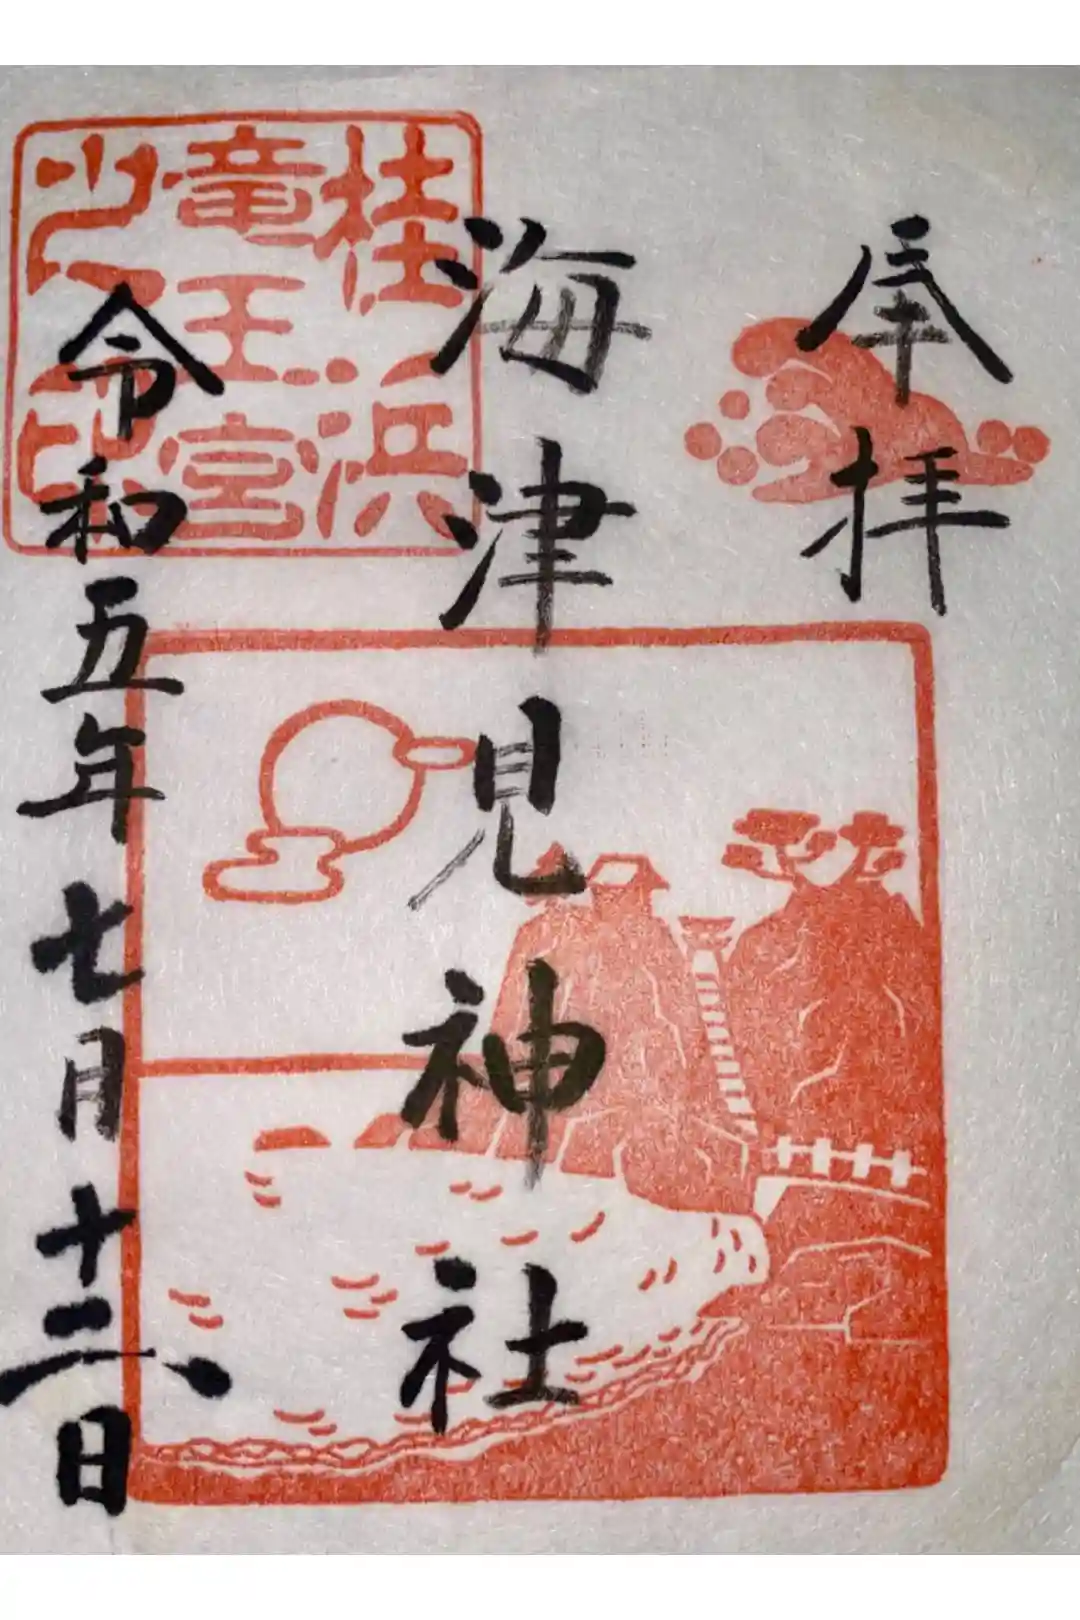 奉拝
海津見神社
令和五年七月十六日
桂浜
竜王宮
之印